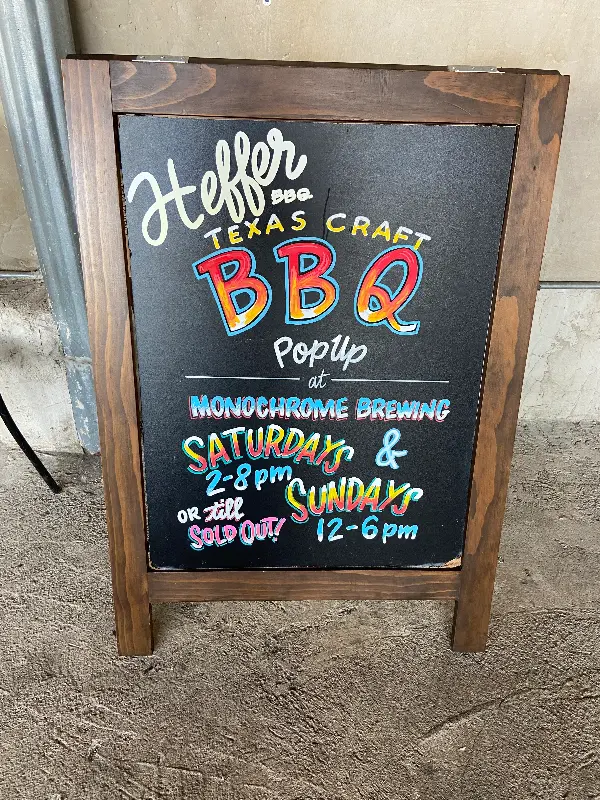 Heffer
BBQ
TEXAS CRAFT
BBQ
PopUp
at
MONOCHROME BREWING
SATURDAYS &
2-8pm
SUNDAYS
12-6pm
OR till
SOLD OUT!